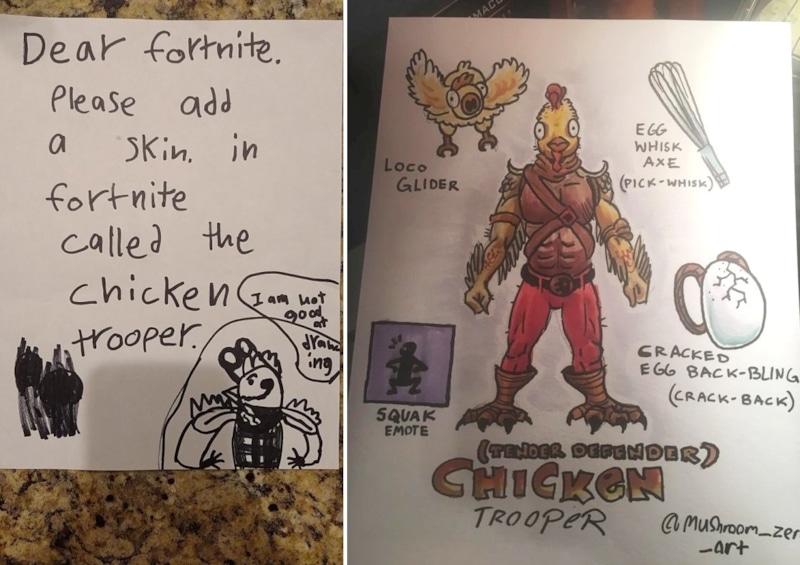 Dear fortnite.
Please add
a skin. in
fortnite
called the
chicken
trooper.
I am not
good at
draw
ing
LOCO
GLIDER
EGG
WHISK
AXE
(PICK-WHISK)
CRACKED
EGG BACK-BLING
(CRACK-BACK)
SQUAK
EMOTE
(TENDER DEFENDER)
CHICKEN
TROOPER
@MUShroom_zer
_art